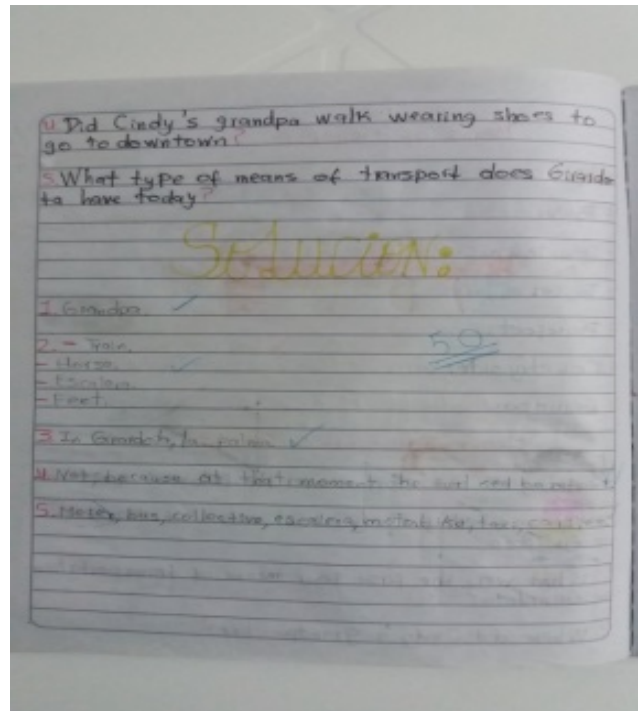 4 Did Cindy's grandpa walk wearing shoes to
go to downtown?
5. What type of means of transport does Girardo
ta have today?
SOLUCION:
1. Grandpa.
2. - Train.
- Horse.
- Escalera.
- Feet.
5.0
3. In Girardota, la palma
4. Not, because at that moment he
5. Motor, bus, collective, escalera,